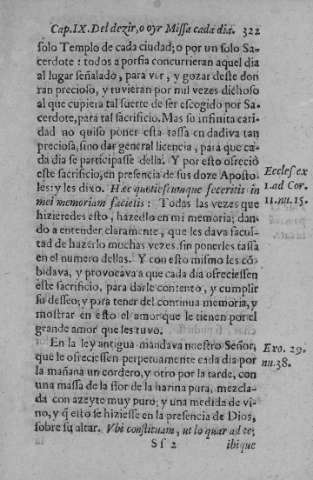 Cap.IX. Del dezir, o oyr Missa cada dia. 322
solo Templo de cada ciudad; o por un solo Sa-
cerdote: todos a porfia concurrieran aquel dia
al lugar señalado, para ver, y gozar deste don
tan precioso, y tuvieran por muy dichoso
al que cupiera tal suerte de ser escogido por Sa-
cerdote, para tal sacrificio. Mas su infinita cari-
dad no quiso poner esta tassa en dadiva tan
preciosa, sino dar general licencia, para que ca-
da dia se participasse della. Y por esto ofreciò
este sacrificio, en presencia de sus doze Aposto
les: y les dixo. Hæc quotiescumque feceritis in
mei memoriam facietis: Todas las vezes que
hizieredes esto, hazedlo en mi memoria; dan-
do a entender claramente, que les dava facul-
tad de hazerlo muchas vezes, sin ponerles tassa
en el numero dellas. Y con esto mismo les cō-
bidava, y provocava a que cada dia ofreciessen
este sacrificio, para darle contento, y cumplir
su desseo; y para tener del continua memoria, y
mostrar en esto el amor que le tienen por el
grande amor que les tuvo.
En la ley antigua mandava nuestro Señor,
que le ofreciessen perpetuamente cada dia por
la mañana un cordero, y otro por la tarde, con
una massa de la flor de la harina pura, mezcla-
da con azeyte muy puro; y una medida de vi-
no, y q̃ esto se hiziesse en la presencia de Dios,
sobre su altar. Vbi constituam, ut loquar ad te;
Sf 2 ibique
Eccles. ex
1. ad Cor.
11. nu. 15.
Exo. 29.
nu. 38.